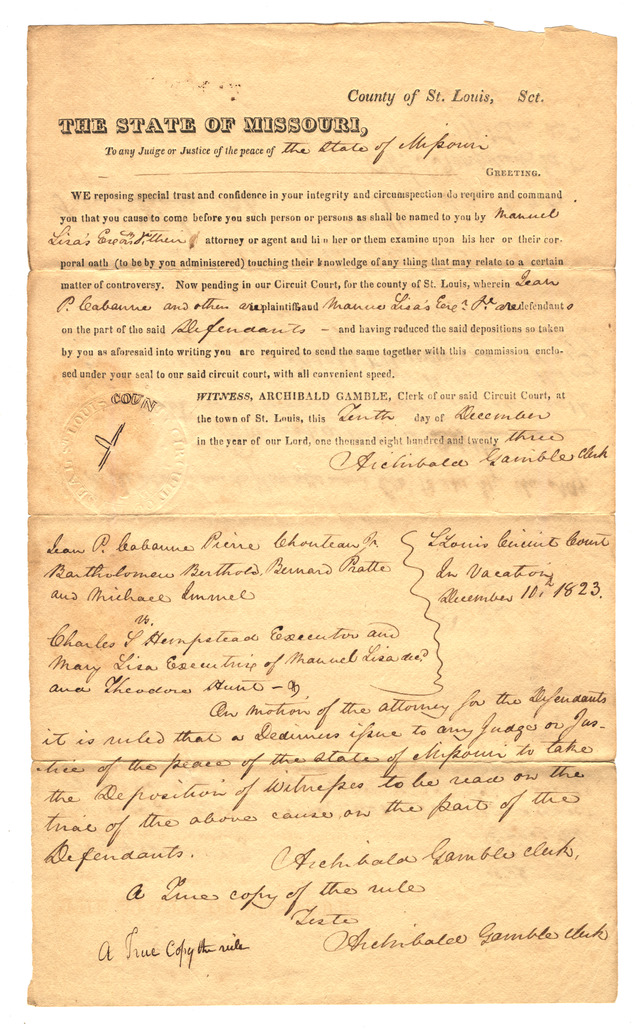 County of St. Louis, Sct.
THE STATE OF MISSOURI,
To any Judge or Justice of the peace of the State of Missouri
GREETING.
WE reposing special trust and confidence in your integrity and circumspection do require and command
you that you cause to come before you such person or persons as shall be named to you by Manuel
Lisa's Exe their attorney or agent and him her or them examine upon his her or their cor-
poral oath (to be by you administered) touching their knowledge of any thing that may relate to a certain
matter of controversy. Now pending in our Circuit Court, for the county of St. Louis, wherein Jean
P. Cabanne and others are plaintiffs and Manuel Lisa's Exe are defendants
on the part of the said Defendants — and having raduced the said depositions so taken
by you as aforesaid into writing you are required to send the same together with this commission enclo-
sed under your seal to our said circuit court, with all convenient speed.
COUN
WITNESS, ARCHIBALD GAMBLE, Clerk of our said Circuit Court, at
the town of St. Louis, this Tenth day of December
in the year of our Lord, one thousand eight hundred and twenty three
Archibald Gamble Clerk
Jean P. Cabanne Pierre Chouteau Jr
Bartholomew Berthold, Bernard Pratte
and Michael Immel
vs.
Charles S Hempstead Executor and
Mary Lisa Executrix of Manuel Lisa decd
and Theodore Hunt
St Louis Circuit Court
In Vacation
December 10th 1823.
On motion of the attorney for the Defendants
it is ruled that a Dedimus issue to any Judge or Jus-
tice of the peace of the State of Missouri to take
the Deposition of Witnesses to be read on the
trial of the above cause, on the part of the
Defendants.
Archibald Gamble clerk,
A True copy of the rule
Teste
Archibald Gamble clerk
A True Copy the rule